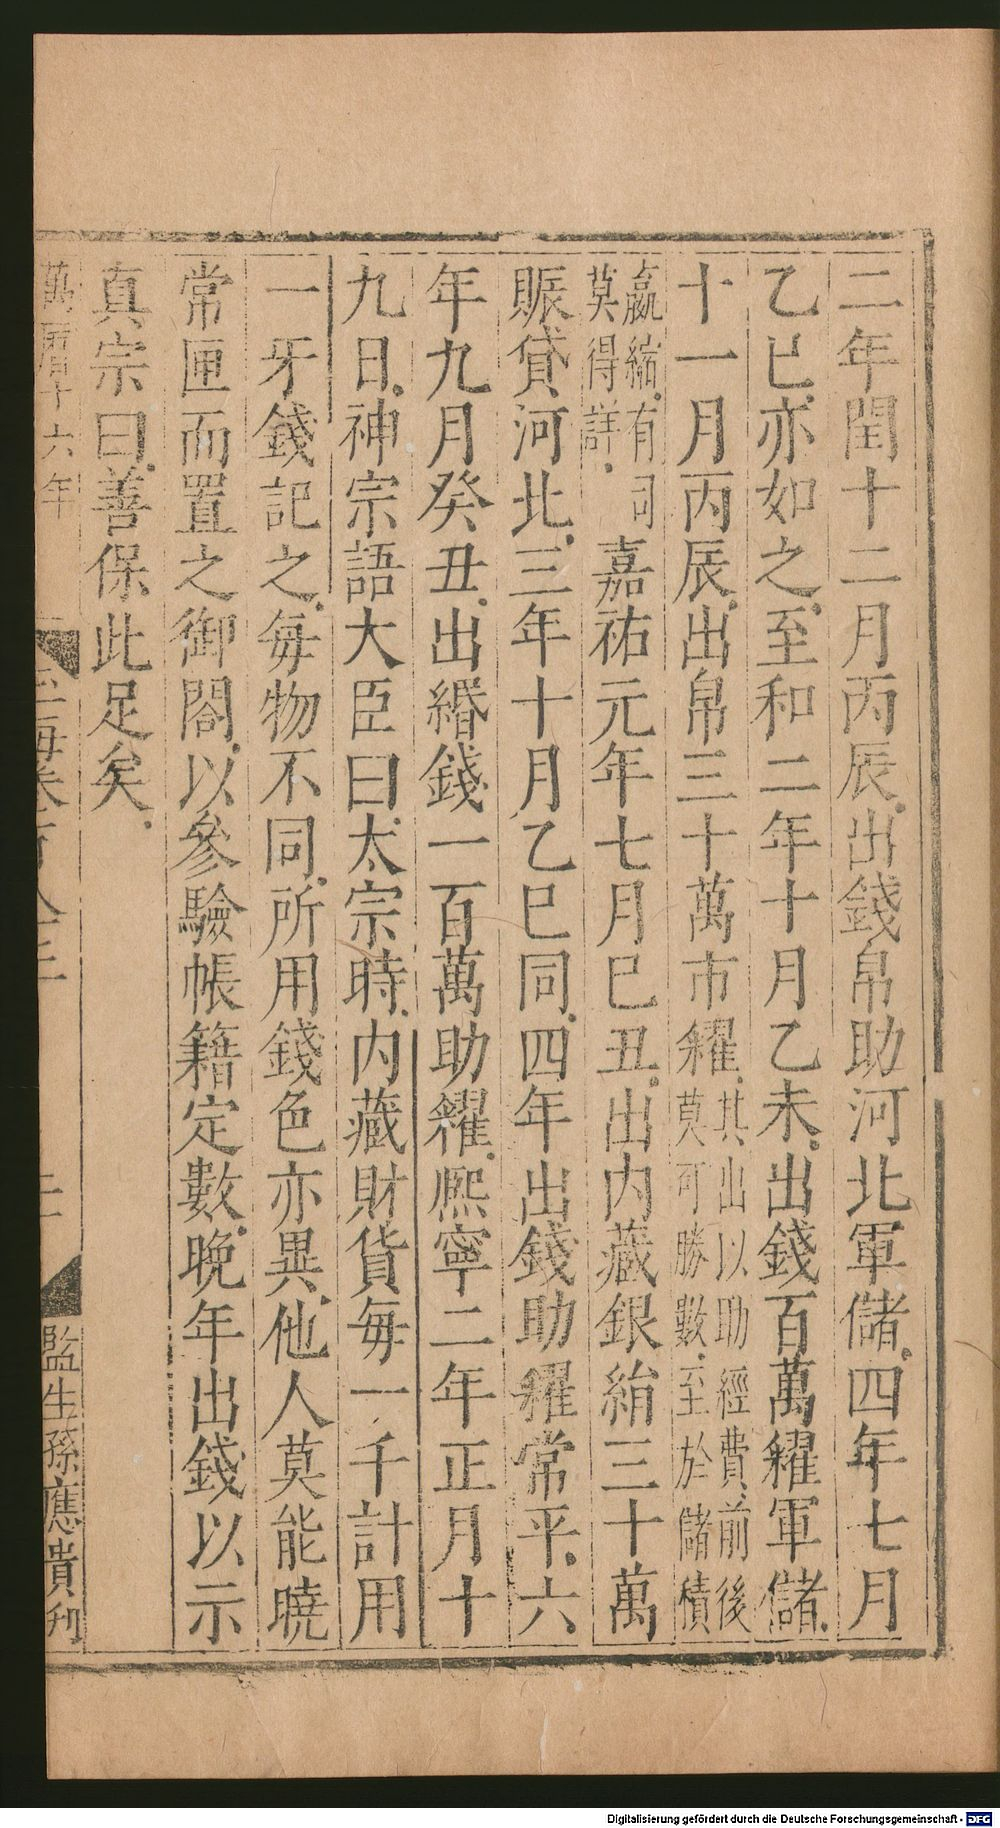 二年閏十二月丙辰出錢帛助河北軍儲四年七月
乙巳亦如之至和二年十月乙未出錢百萬糴軍儲
十一月丙辰出帛三十萬市糴其出以助經費前後莫可勝數至於儲積
嬴縮有司莫得詳嘉祐元年七月巳丑出内藏銀絹三十萬
賑貸河北三年十月乙巳同四年出錢助糴常平六
年九月癸丑出緡錢一百萬助糴熈寧二年正月十
九日神宗語大臣曰太宗時内藏財貨每一千計用
一牙錢記之每物不同所用錢色亦異他人莫能曉
常匣而置之御閤以參驗帳籍定數晚年出錢以示
真宗曰善保此足矣
萬曆十六年
玉海卷百八三
二
監生孫應貴刋
Digitalisierung gefördert durch die Deutsche Forschungsgemeinschaft - DFG